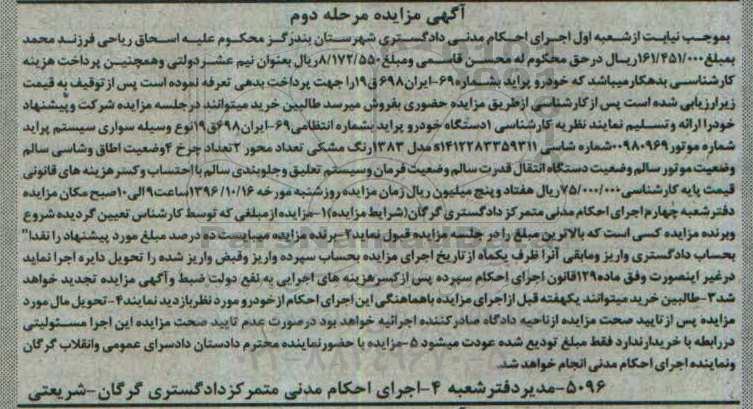 آگهی مزایده مرحله دوم
بموجب نیابت ازشعبه اول اجرای احکام مدنی دادگستری شهرستان بندرگز محکوم علیه اسحاق ریاحی فرزند محمد
بمبلغ۱۶۱/۴۵۱/۰۰۰ریال درحق محکوم له محسن قاسمی ومبلغ۸/۱۷۲/۵۵۰ریال بعنوان نیم عشردولتی وهمچنین پرداخت هزینه
کارشناسی بدهکارمیباشد که خودرو پراید بشماره۶۹-ایران۶۹۸ق۱۹را جهت پرداخت بدهی تعرفه نموده است پس ازتوقیف به قیمت
زیرارزیابی شده است پس ازکارشناسی ازطریق مزایده حضوری بفروش میرسد طالبین خرید میتوانند درجلسه مزایده شرکت وپیشنهاد
خودرا ارائه وتسلیم نمایند نظریه کارشناسی ۱دستگاه خودرو پراید بشماره انتظامی۶۹-ایران۶۹۸ق۱۹نوع وسیله سواری سیستم پراید
شماره موتور۰۰۹۸۰۹۶۹شماره شاسی s۱۴۱۲۲۸۳۳۵۹۳۱۱ مدل ۱۳۸۳رنگ مشکی تعداد محور ۲تعداد چرخ ۴وضعیت اطاق وشاسی سالم
وضعیت موتور سالم وضعیت دستگاه انتقال قدرت سالم وضعیت فرمان وسیستم تعلیق وجلوبندی سالم بااحتساب وکسر هزینه های قانونی
قیمت پایه کارشناسی۷۵/۰۰۰/۰۰۰ریال هفتاد و پنج میلیون ریال زمان مزایده روزشنبه مورخه ۱۳۹۶/۱۰/۱۶ساعت۹الی۱۰صبح مکان مزایده
دفترشعبه چهارم اجرای احکام مدنی متمرکز دادگستری گرگان(شرایط مزایده)۱-مزایده ازمبلغی که توسط کارشناس تعیین گردیده شروع
وبرنده مزایده کسی است که بالاترین مبلغ را در جلسه مزایده قبول نماید۲-برنده مزایده میبایست ده درصد مبلغ مورد پیشنهاد را نقدا"
بحساب دادگستری واریز ومابقی آنرا ظرف یکماه ازتاریخ اجرای مزایده بحساب سپرده واریز وقبض واریز شده را تحویل دایره اجرا نماید
درغیر اینصورت وفق ماده۱۲۹قانون اجرای احکام سپرده پس ازکسرهزینه های اجرایی به نفع دولت ضبط وآگهی مزایده تجدید خواهد
شد۳-طالبین خرید میتوانند یکهفته قبل ازاجرای مزایده باهماهنگی این اجرای احکام ازخودرو مورد نظربازدید نمایند۴-تحویل مال مورد
مزایده پس ازتایید صحت مزایده ازناحیه دادگاه صادرکننده اجرائیه خواهد بود درصورت عدم تایید صحت مزایده این اجرا مسئولیتی
دررابطه با خریدارندارد فقط مبلغ تودیع شده عودت میشود ۵-مزایده با حضورنماینده محترم دادستان دادسرای عمومی وانقلاب گرگان
ونماینده اجرای احکام مدنی انجام خواهد شد.
۵۰۹۶-مدیردفترشعبه ۴-اجرای احکام مدنی متمرکزدادگستری گرگان-شریعتی